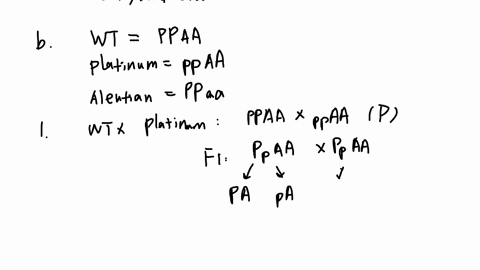 b. WT = PPAA
platinum = ppAA
Aleutian = PPaa
1. WT x platinum : PPAA x ppAA (P)
F1: PpAA x PpAA
PA pA